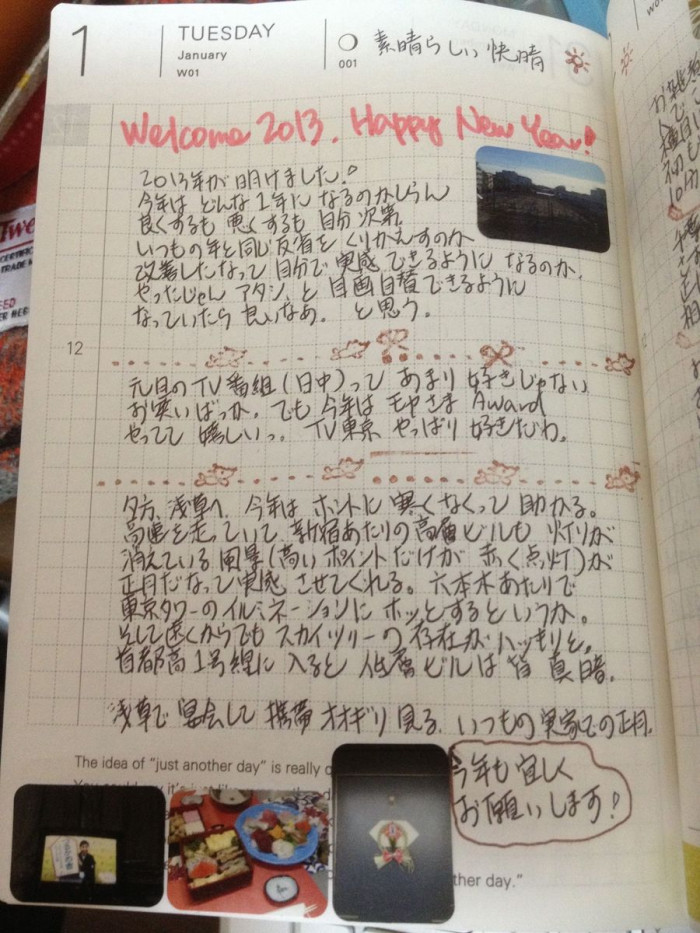 1
TUESDAY
January
W01
001
素晴らしい快晴
Welcome 2013. Happy New Year!
2013年が明けました!
今年はどんな1年になるのかしらん
良くするも悪くするも自分次第。
いつもの年と同じ反省をくりかえすのか
改善したなって自分で実感できるようになるのか。
やったじゃんアタシ、と自画自賛できるように
なっていたら良いなあ。と思う。
12
元日のTV番組(日中)ってあまり好きじゃない
お笑いばっか。でも今年はモヤさまAward
やってて嬉しいっ。TV東京やっぱり好きだわ。
夕方、浅草へ。今年はホントに寒くなくって助かる。
高速を走っていて新宿あたりの高層ビルも灯りが
消えている風景(高いポイントだけが赤く点灯)が
正月だなって実感させてくれる。六本木あたりで
東京タワーのイルミネーションにホッとするというか。
そして遠くからでもスカイツリーの存在がハッキリと。
首都高1号線に入ると低層ビルは皆真暗。
浅草で宴会して携帯オオギリ見る、いつもの実家での正月。
The idea of "just another day" is really
今年も宜しく
お願いします!
ther day."